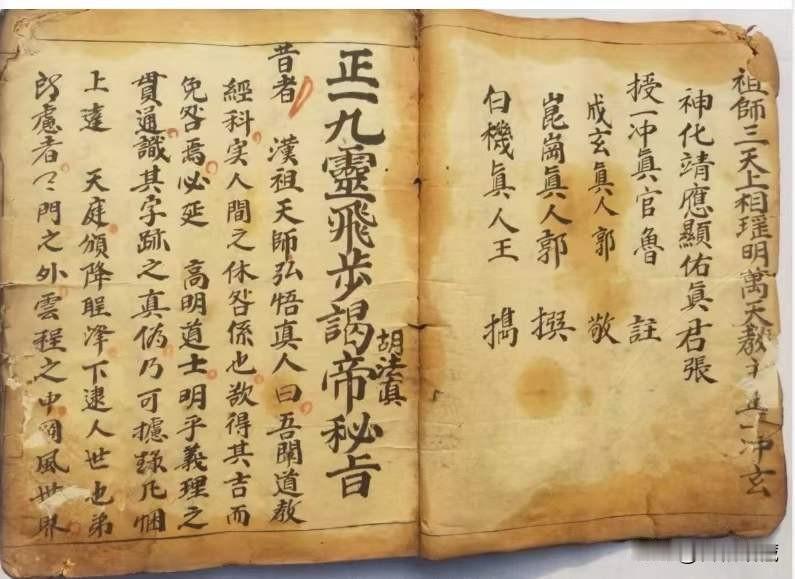 祖師三天上相瑶明萬天教主正一冲玄
神化靖應顯佑真君張
授一冲真官魯 註
成玄真人郭 敬
崑崗真人郭 撰
白機真人王 攜
正一九靈飛步謁帝秘旨
胡法真
昔者 漢祖天師弘悟真人曰吾聞道教
經科实人間之休咎係也欲得其吉而
免咎焉必延 高明道士明乎義理之
貫通識其字跡之真偽乃可據錄凡悃
上達 天庭頒降聖澤下逮人世也弟
門之外雲程之中罡風世界